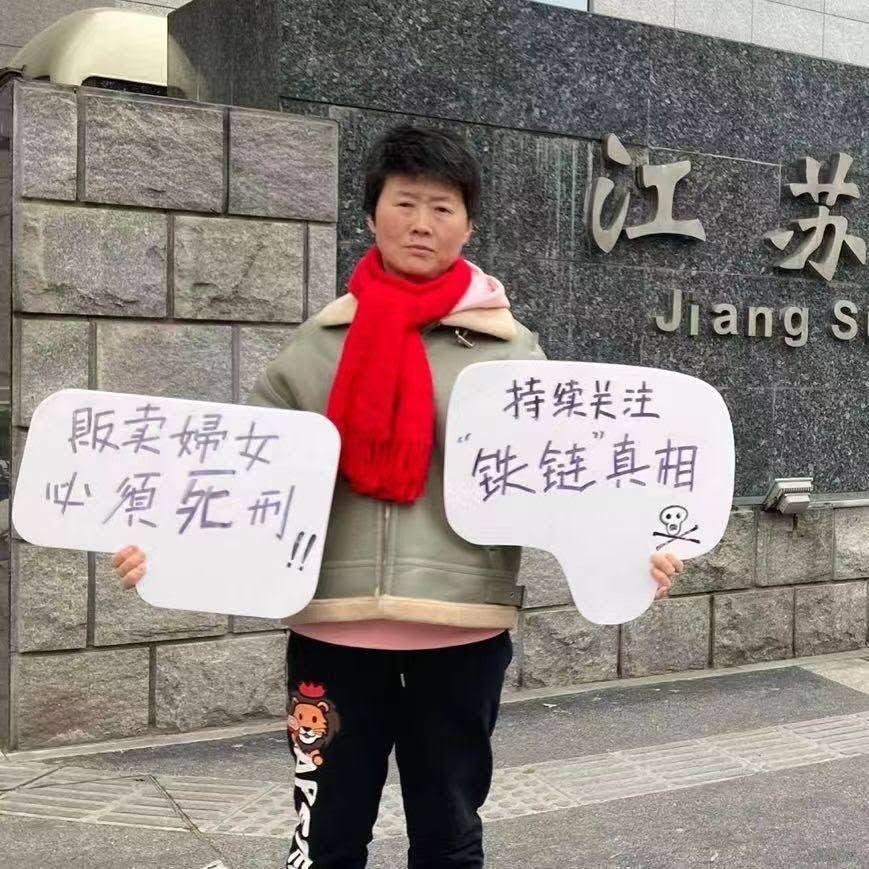 江苏
Jiang S
販卖婦女
必須死刑!!
持续关注
“铁链”真相